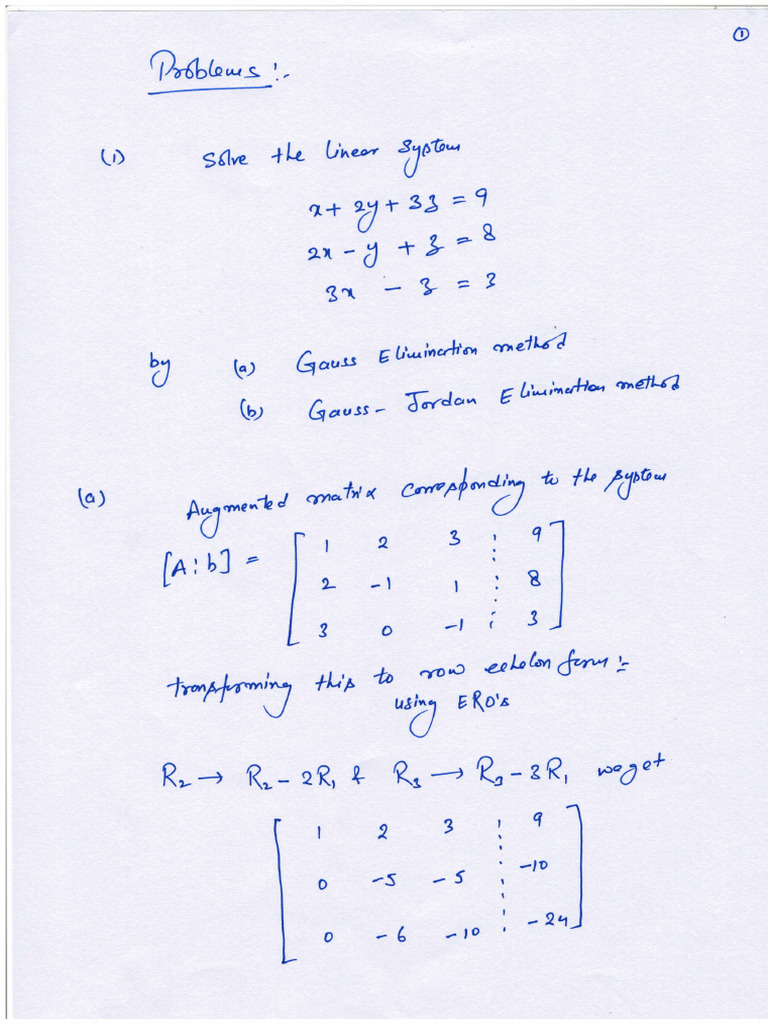 ①
Problems:-
(1) Solve the linear system
x + 2y + 3z = 9
2x - y + z = 8
3x - z = 3
by (a) Gauss Elimination method
(b) Gauss - Jordan Elimination method
(a) Augmented matrix corresponding to the system
[A:b] = [ 1 2 3 : 9
2 -1 1 : 8
3 0 -1 : 3 ]
transforming this to row echelon form:-
using ERO's
R2 → R2 - 2R1 & R3 → R3 - 3R1 we get
[ 1 2 3 : 9
0 -5 -5 : -10
0 -6 -10 : -24 ]